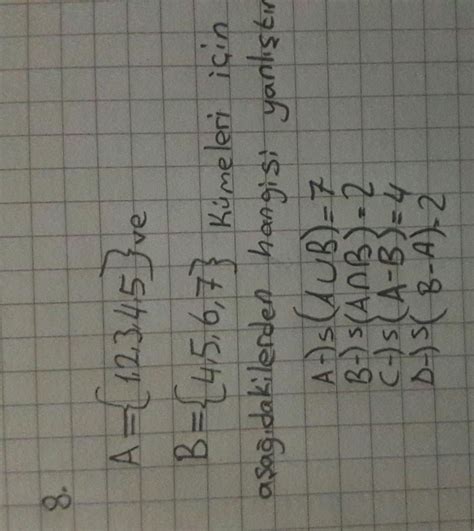 8.
A={1,2,3,4,5} ve
B={4,5,6,7} Kümeleri için
aşağıdakilerden hangisi yanlıştır
A-) s(A∪B)=7
B-) s(A∩B)=2
C-) s(A-B)=4
D-) s(B-A)=2